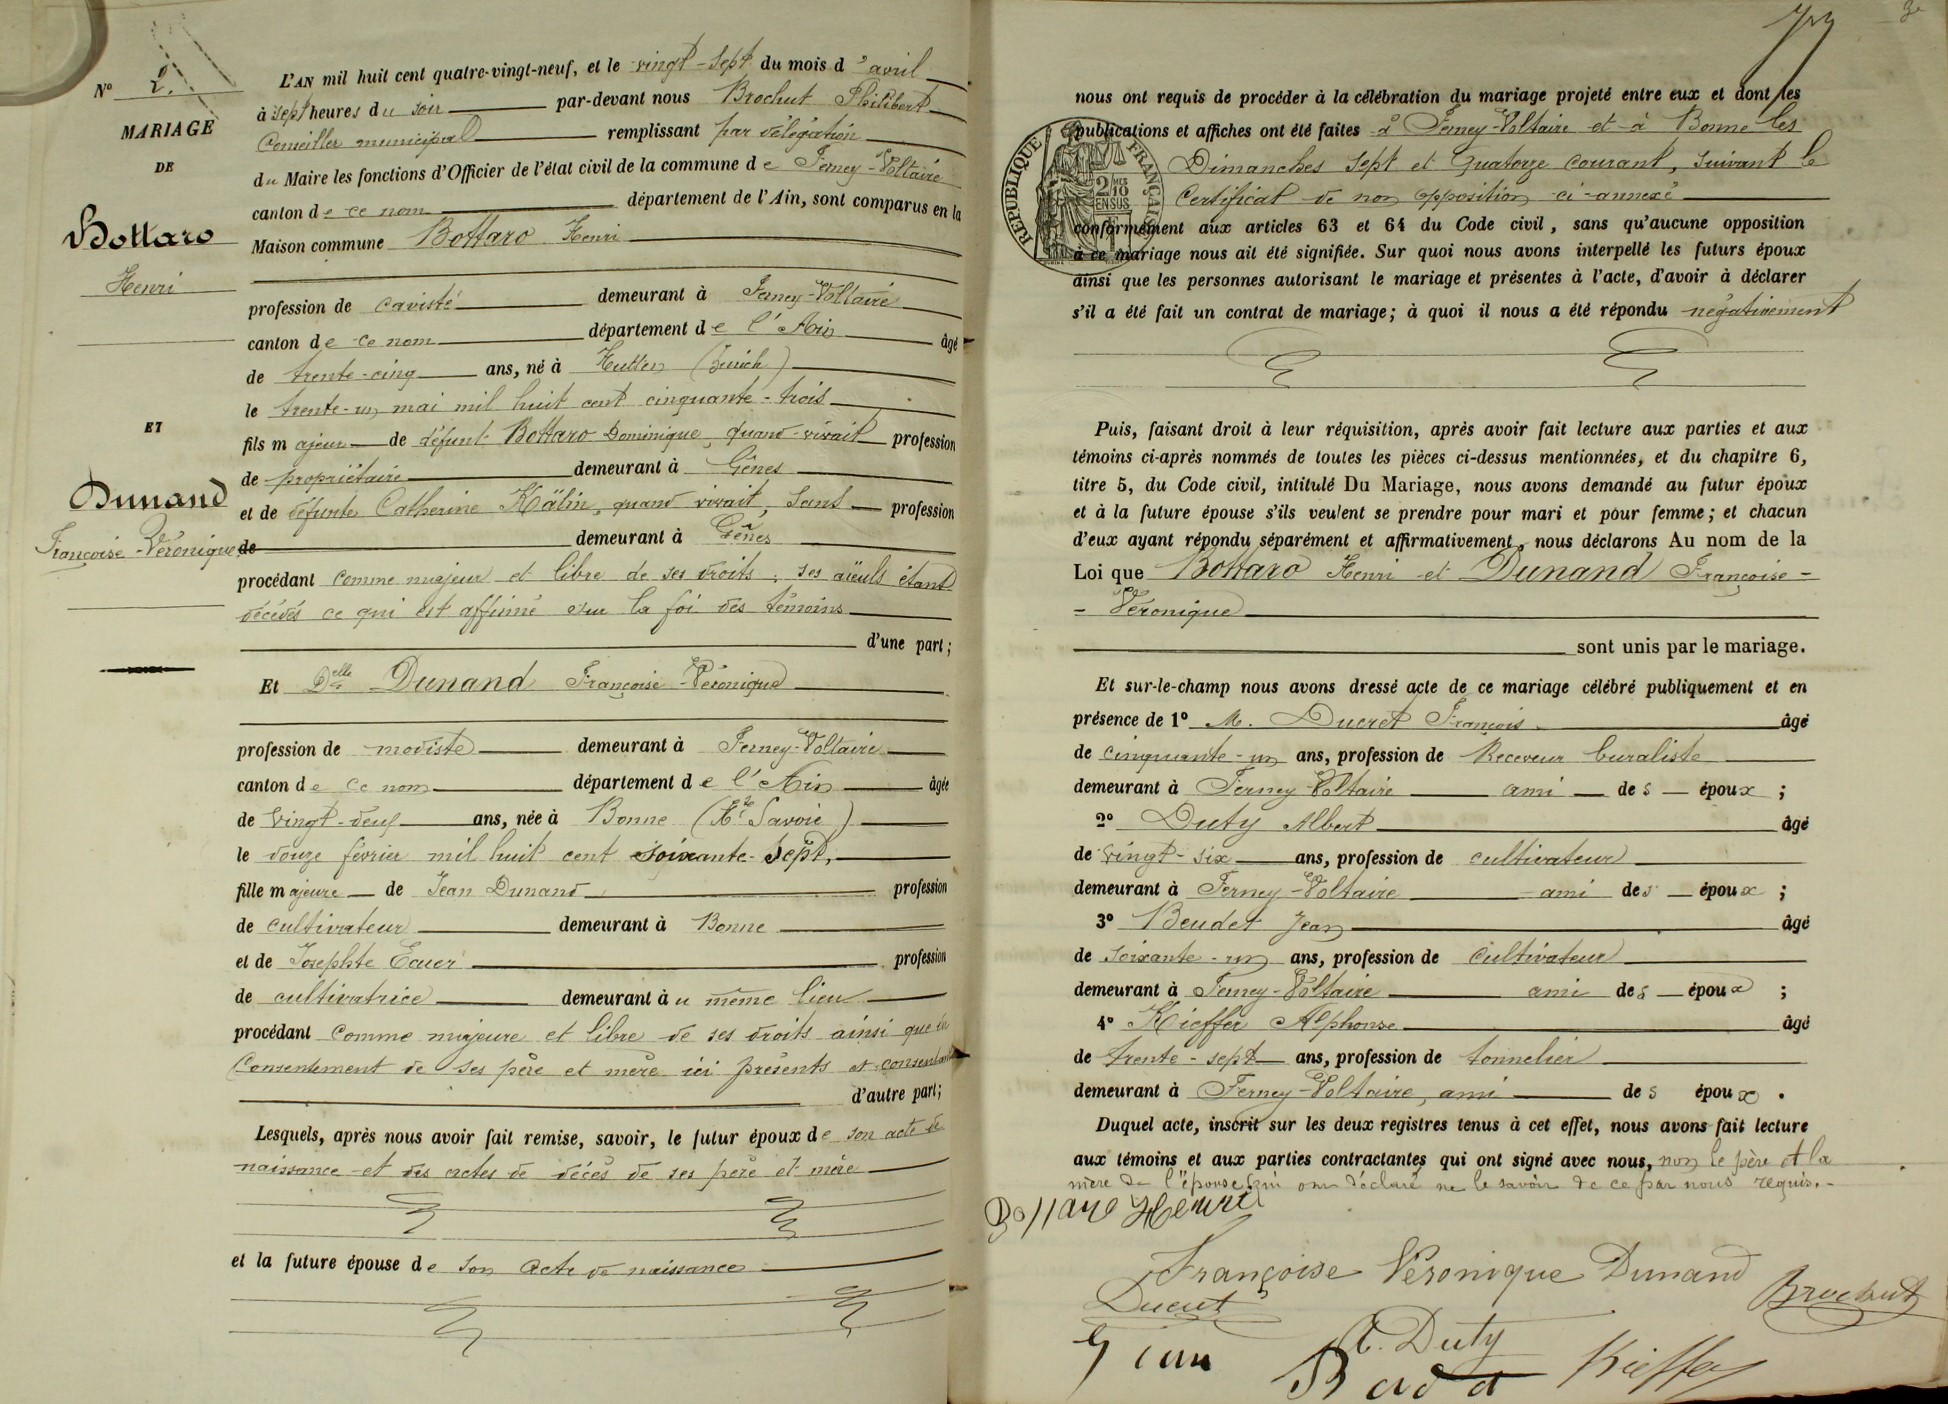 N° 2.
MARIAGE
DE
Bottaro
Henri
ET
Dunand
Françoise-Véronique
L'AN mil huit cent quatre-vingt-neuf, et le vingt-sept du mois d'avril
à sept heures du soir par-devant nous Brochut Philibert
Conseiller municipal remplissant par délégation
du Maire les fonctions d'Officier de l'état civil de la commune de Ferney-Voltaire
canton de ce nom département de l'Ain, sont comparus en la
Maison commune Bottaro Henri
profession de caviste demeurant à Ferney-Voltaire
canton de ce nom département de l'Ain âgé
de trente-cinq ans, né à Hutten (Zurich)
le trente-un mai mil huit cent cinquante-trois
fils majeur de défunt Bottaro Dominique, quand vivait profession
de propriétaire demeurant à Gênes
et de défunte Catherine Kälin, quand vivait, sans profession
de demeurant à Gênes
procédant comme majeur et libre de ses droits; ses aïeuls étant
décédés ce qui est affirmé sur la foi des témoins
d'une part;
Et Delle Dunand Françoise-Véronique
profession de modiste demeurant à Ferney-Voltaire
canton de ce nom département de l'Ain âgée
de vingt-deux ans, née à Bonne (Hte Savoie)
le douze février mil huit cent soixante-sept,
fille majeure de Jean Dunand profession
de cultivateur demeurant à Bonne
et de Josephte Ecuer profession
de cultivatrice demeurant au même lieu
procédant comme majeure et libre de ses droits ainsi que du
Consentement de ses père et mère ici présents et consentant
d'autre part;
Lesquels, après nous avoir fait remise, savoir, le futur époux de son acte de
naissance et des actes de décès de ses père et mère
et la future épouse de son acte de naissance
nous ont requis de procéder à la célébration du mariage projeté entre eux et dont les
publications et affiches ont été faites à Ferney-Voltaire et à Bonne les
Dimanches sept et quatorze courant, suivant le
Certificat de non opposition ci-annexé
RÉPUBLIQUE FRANÇAISE
2 MES 10 EN SUS
conformément aux articles 63 et 64 du Code civil, sans qu'aucune opposition
à ce mariage nous ait été signifiée. Sur quoi nous avons interpellé les futurs époux
ainsi que les personnes autorisant le mariage et présentes à l'acte, d'avoir à déclarer
s'il a été fait un contrat de mariage; à quoi il nous a été répondu négativement
Puis, faisant droit à leur réquisition, après avoir fait lecture aux parties et aux
témoins ci-après nommés de toutes les pièces ci-dessus mentionnées, et du chapitre 6,
titre 5, du Code civil, intitulé Du Mariage, nous avons demandé au futur époux
et à la future épouse s'ils veulent se prendre pour mari et pour femme; et chacun
d'eux ayant répondu séparément et affirmativement, nous déclarons Au nom de la
Loi que Bottaro Henri et Dunand Françoise-
-Véronique
sont unis par le mariage.
Et sur-le-champ nous avons dressé acte de ce mariage célébré publiquement et en
présence de 1° M. Ducret François âgé
de cinquante-un ans, profession de Receveur buraliste
demeurant à Ferney-Voltaire ami des époux;
2° Duty Albert âgé
de vingt-six ans, profession de cultivateur
demeurant à Ferney-Voltaire ami des époux;
3° Beudet Jean âgé
de soixante-un ans, profession de cultivateur
demeurant à Ferney-Voltaire ami des époux;
4° Kieffer Alphonse âgé
de trente-sept ans, profession de tonnelier
demeurant à Ferney-Voltaire, ami des époux.
Duquel acte, inscrit sur les deux registres tenus à cet effet, nous avons fait lecture
aux témoins et aux parties contractantes qui ont signé avec nous, non le père et la
mère de l'épouse qui ont déclaré ne le savoir de ce par nous requis.
Bottaro Henri
Françoise Véronique Dunand
Ducret Brochut
A. Duty
Kieffer